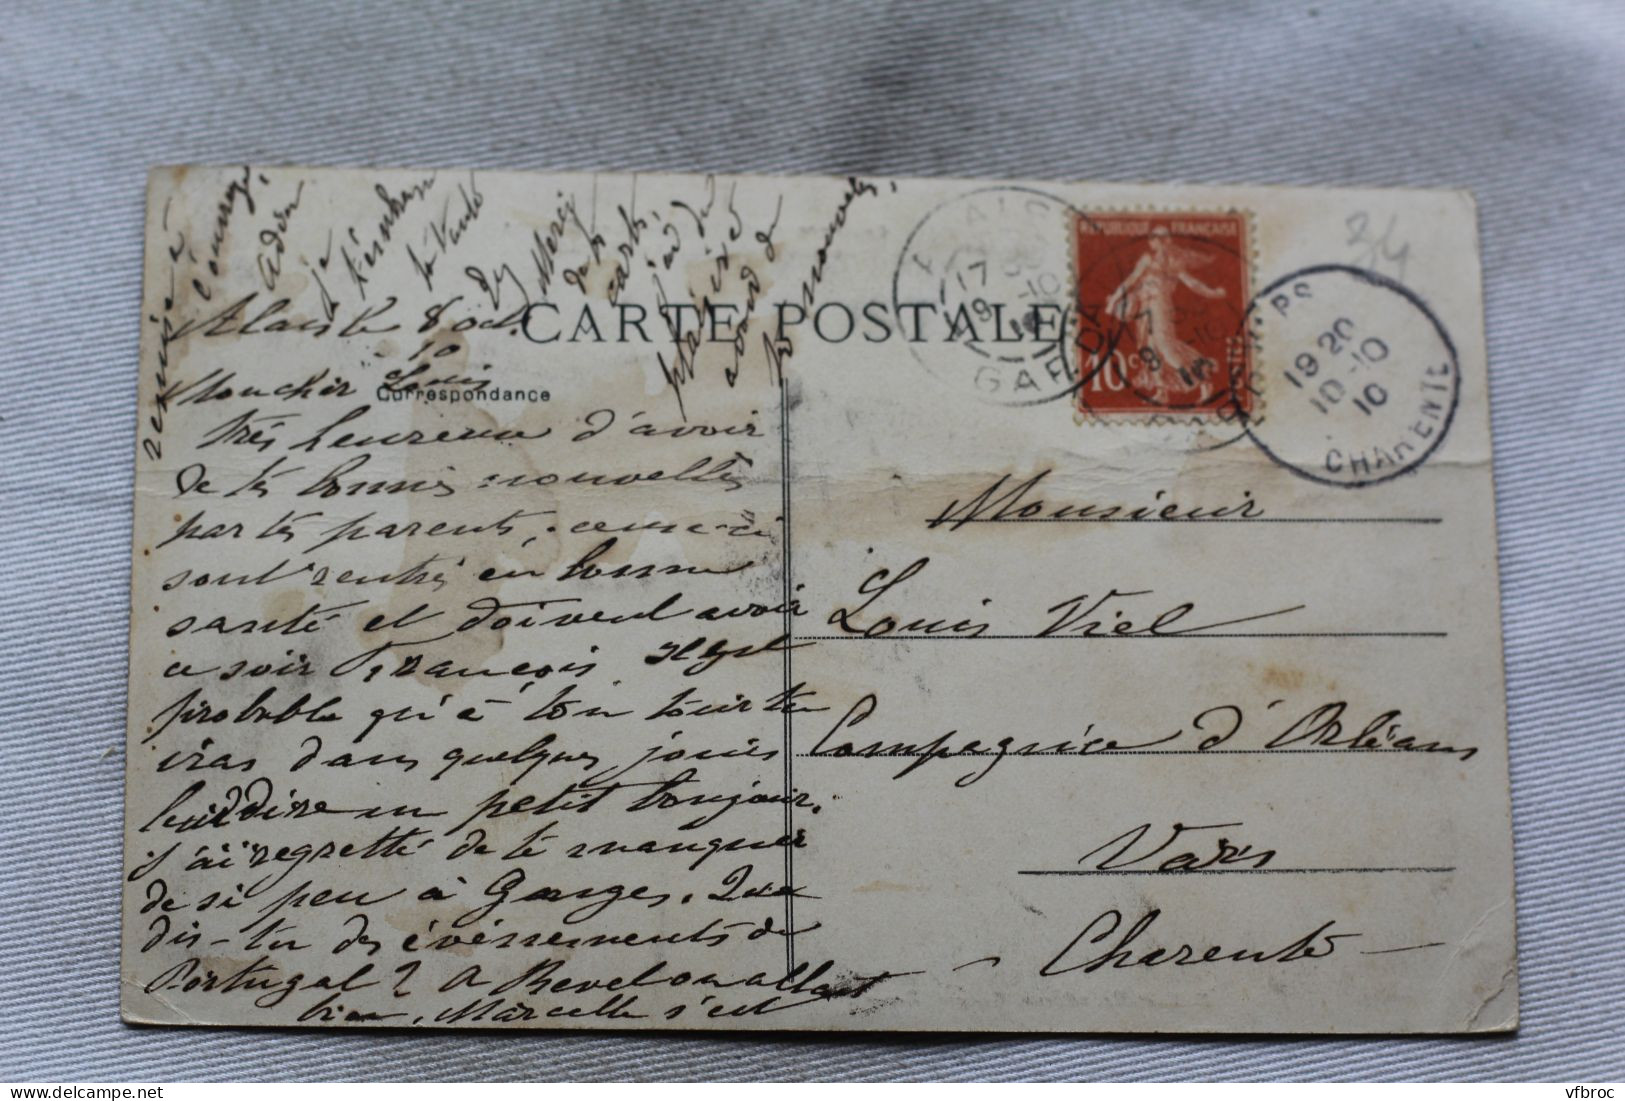 CARTE POSTALE
Correspondance
Alais le 8 oct.
10
Mon cher Louis
très heureux d'avoir
de tes bonnes nouvelles
par tes parents. ceux-ci
sont rentrés en bonne
santé et doivent avoir
ce soir François. Il est
probable qu'à ton tour tu
iras dans quelques jours
lui dire un petit bonjour.
J'ai regretté de te manquer
de si peu à Ganges. Que
dis-tu des événements de
Portugal ? A Revel on allait
bien. Marcelle s'est
remise à
l'ouvrage,
Adieu
je
t'embrasse
Merci
de ta
carte,
j'ai du
plaisir
avoir de
nouvelles,
REPUBLIQUE FRANÇAISE
10 c
ALAIS
17
8 -10
10
GARD
VARS
19 20
10 -10
10
CHARENTE
34
Monsieur
Louis Viel
Compagnie d'Orléans
Vars
- Charente -
vfbroc